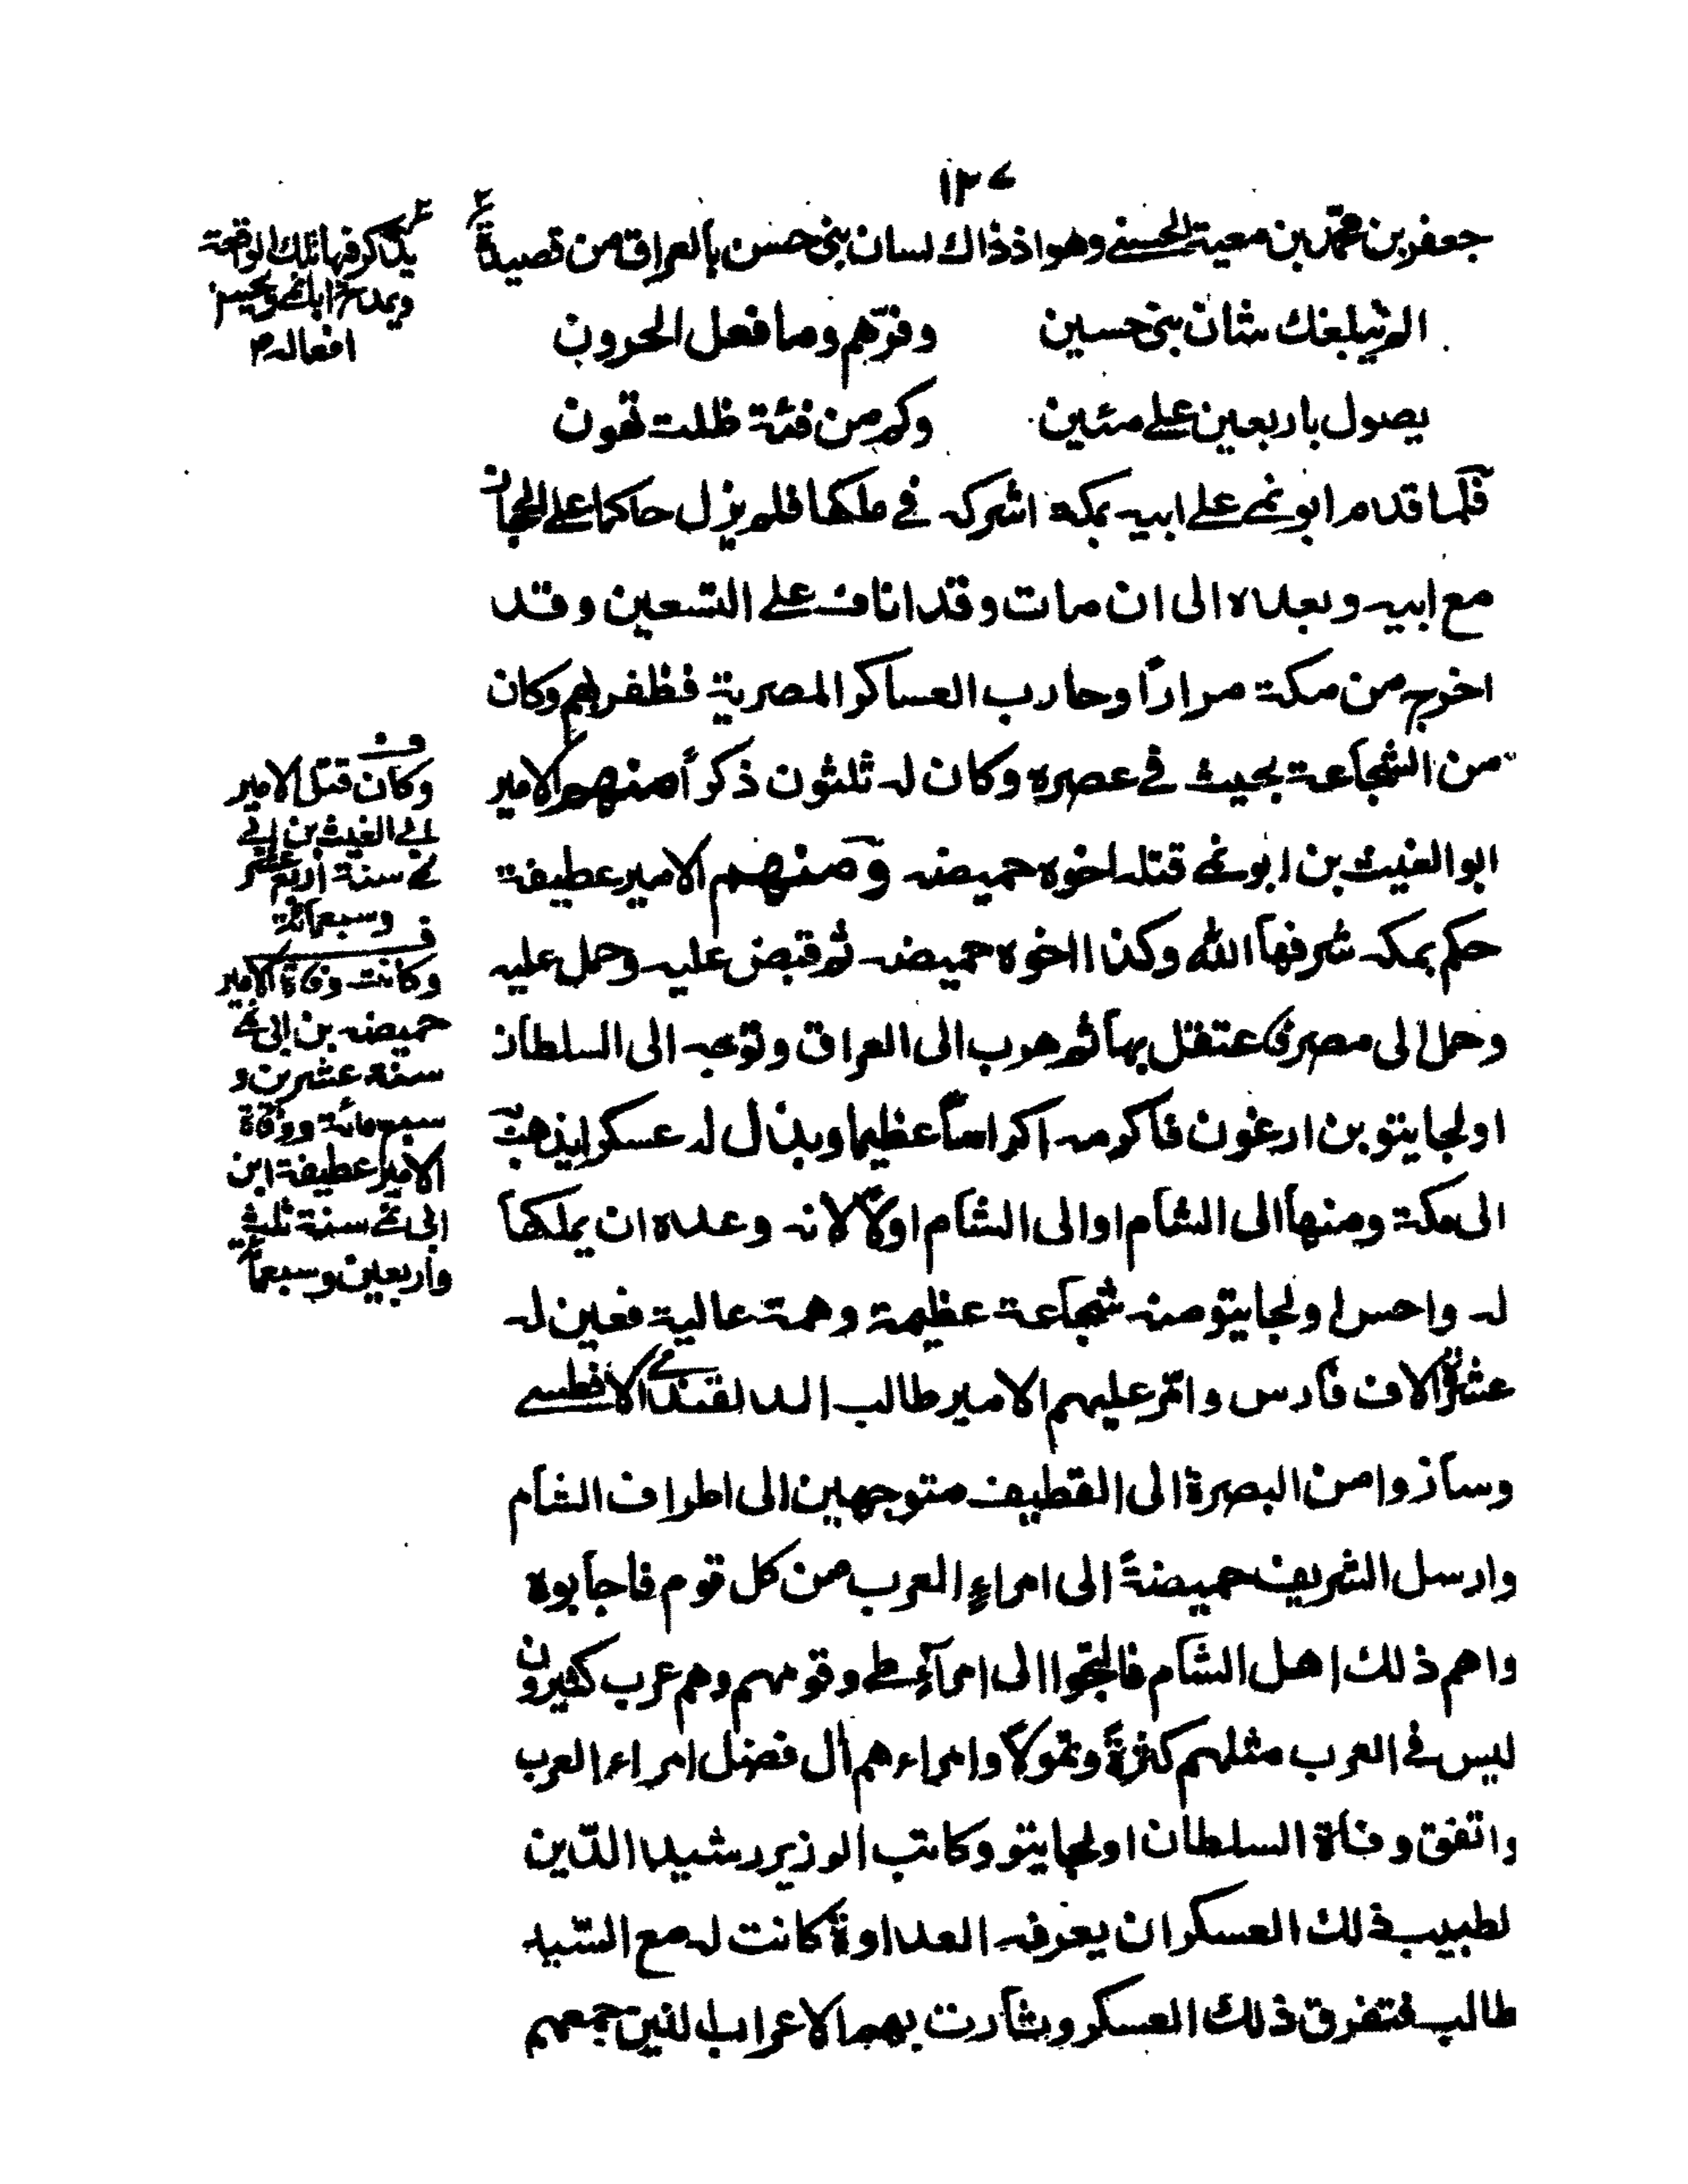 ١٣٧
جعفر بن محمّد بن معية الحسنى وهو اذ ذاك لسان بنى حسن بالعراق من قصيدة
يذكر فيها تلك الواقعة
ويمدح ابا نمى ويحسن
افعاله
الم يبلغك شان بنى حسين وفرّهم وما فعل الحرون
يصول باربعين على مئين وكم من فئة ظلت تهون
فلما قدم ابو نمى على ابيه بمكة اشركه فى ملكها فلم يزل حاكما على الحجاز
مع ابيه وبعده الى ان مات وقد اناف على التسعين وقد
اخرج من مكة مرارًا وحارب العساكر المصرية فظفر بهم وكان
من الشجاعة بحيث فى عصره وكان له ثلثون ذكرأ منهم الامير
ابو الغيث بن ابو نمى قتله اخوه حميضه ومنهم الامير عطيفة
حكم بمكه شرفها الله وكذا اخوه حميضه ثم قبض عليه وحمل عليه
وحمل الى مصر فاعتقل بها ثم هرب الى العراق وتوجه الى السلطان
اولجايتو بن ارغون فاكرمه اكراماً عظيما وبذل له عسكرا يذهب
الى مكة ومنها الى الشام او الى الشام اولاً لانه وعده ان يملكها
له واحس اولجايتو منه شجاعة عظيمة وهمة عالية فعين له
عشرة الاف فارس وامّر عليهم الامير طالب الدلقندى الافطسى
وساروا من البصرة الى القطيف متوجهين الى اطراف الشام
وارسل الشريف حميضةً الى امراءِ العرب من كل قوم فاجابوه
واهم ذلك اهل الشام فالتجوا الى امراءِ طى وقومهم وهم عرب كثيرون
ليس فى العرب مثلهم كثرةً وتمولاً وامراءهم أل فضل امراء العرب
واتفق وفاة السلطان اولجايتو وكاتب الوزير رشيد الدّين
لطبيب ذلك العسكر ان يعرفه العداوة كانت له مع السّيد
طالب فتفرق ذلك العسكر وثارت بهم الاعراب الذين جمعهم
وكان قتل الامير
ابى الغيث بن ابى
نمى سنة اربع عشر
وسبعمائة
وكانت وفاة الامير
حميضه بن ابى نمى
سنة عشرين و
سبعمائة ووفاة
الامير عطيفة ابن
ابى نمى سنة ثلث
واربعين وسبعمأ